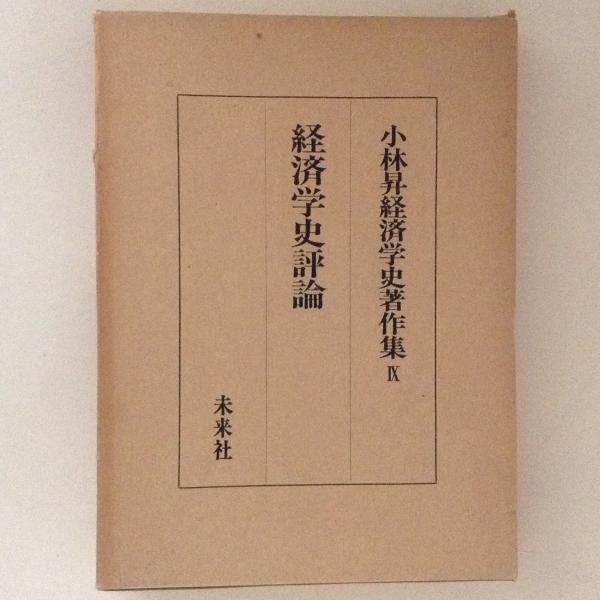 小林昇経済学史著作集 Ⅸ
経済学史評論
未来社